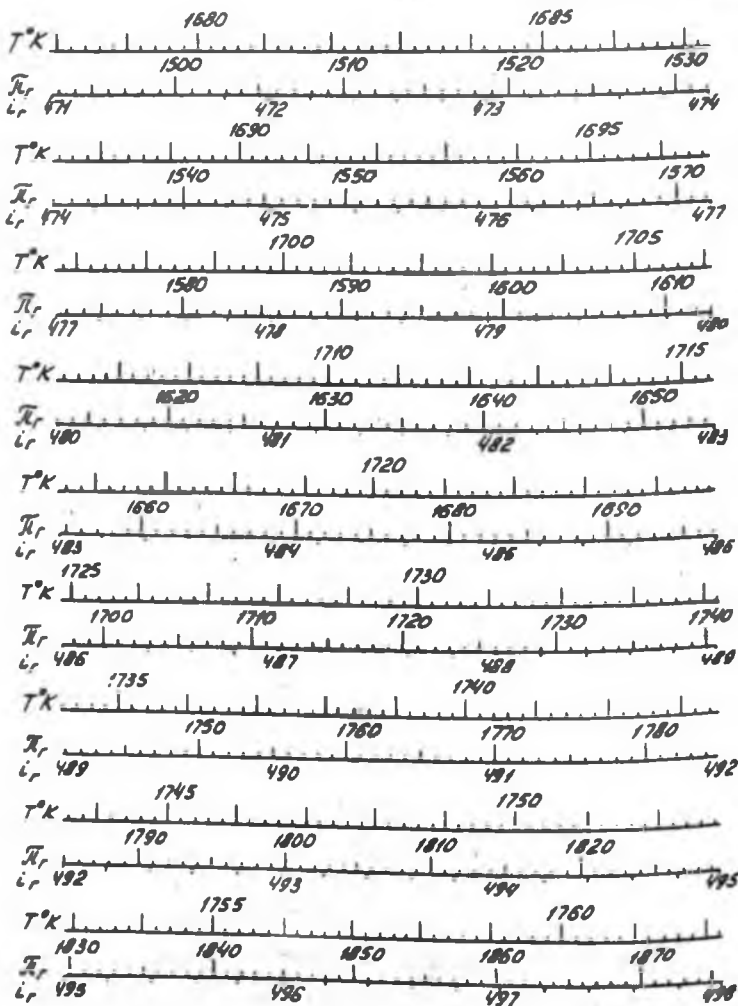 1680 1685
T°K
1500 1510 1520 1530
πr
ir 471 472 473 474
1690 1695
T°K
1540 1550 1560 1570
πr
ir 474 475 476 477
1700 1705
T°K
1580 1590 1600 1610
πr
ir 477 478 479 480
1710 1715
T°K
1620 1630 1640 1650
πr
ir 480 481 482 483
1720
T°K
1660 1670 1680 1690
πr
ir 483 484 485 486
1725 1730
T°K
1700 1710 1720 1730 1740
πr
ir 486 487 488 489
1735 1740
T°K
1750 1760 1770 1780
πr
ir 489 490 491 492
1745 1750
T°K
1790 1800 1810 1820
πr
ir 492 493 494 495
1755 1760
T°K
1830 1840 1850 1860 1870
πr
ir 495 496 497 498